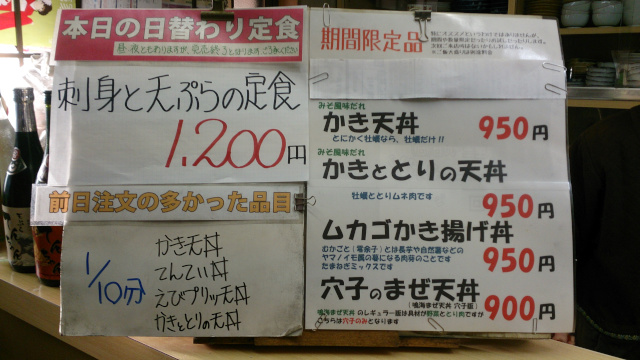 本日の日替わり定食
昼・夜ともわりますが、完売続きとなります。ご了承ください
刺身と天ぷらの定食
1,200円
前日注文の多かった品目
1/10分
かき天丼
てんてい丼
えびプリッ天丼
かきととりの天丼
期間限定品
みそ風味だれ
かき天丼 950円
とにかく牡蠣なら、牡蠣だけ!!
みそ風味だれ
かきととりの天丼
牡蠣ととりムネ肉です 950円
ムカゴかき揚げ丼
むかごと(零余子)とは長芋や自然薯などの
ヤマノイモ属の蔓になる肉芽のことです
たまねぎミックスです 950円
穴子のまぜ天丼 900円
(鳴海まぜ天丼 穴子版)
鳴海まぜ天丼 のレギュラー版は具材が野菜ととり肉ですが
こちらは穴子のみとなります